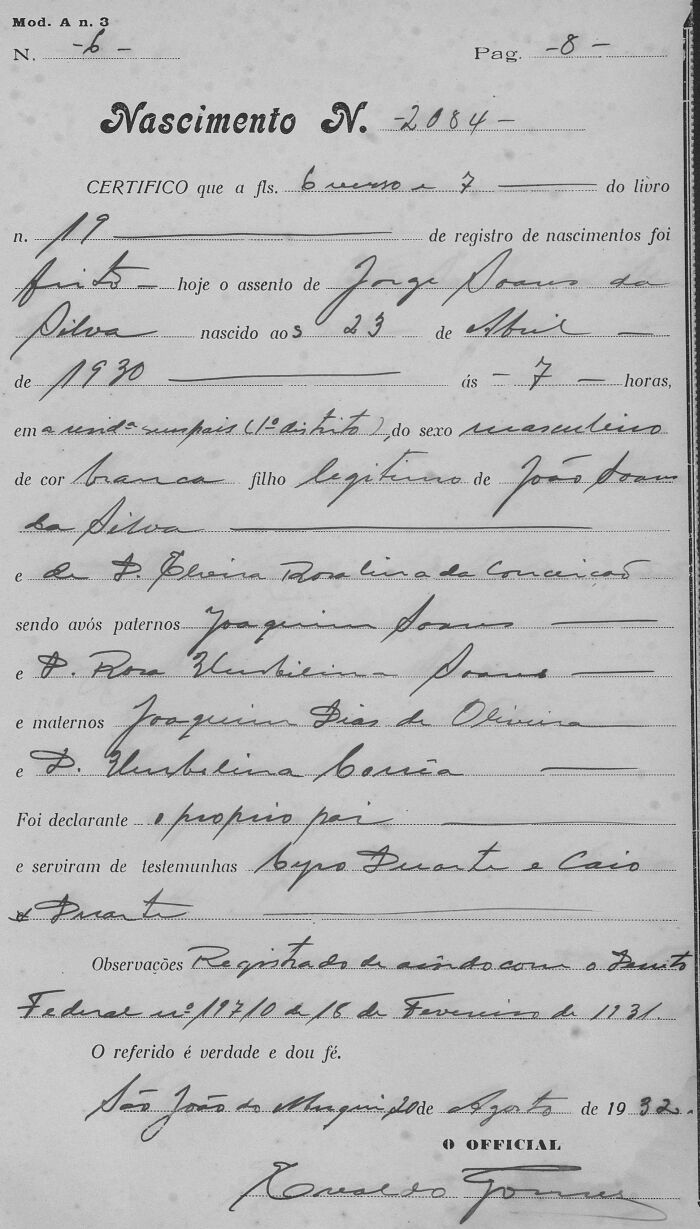 Mod. A n. 3
N. -6- Pag. -8-
Nascimento N. -2084-
CERTIFICO que a fls. 6 verso e 7 do livro
n. 19 de registro de nascimentos foi
feito hoje o assento de Jorge Soares da
Silva nascido aos 23 de Abril
de 1930 ás -7- horas,
em a residª seus pais (1º distrito), do sexo masculino
de cor branca filho legitimo de João Soares
da Silva
e de D. Elveira Rosalina da Conceição
sendo avós paternos Joaquim Soares
e D. Rosa Umbilina Soares
e maternos Joaquim Dias de Oliveira
e D. Umbelina Corrêa
Foi declarante o proprio pai
e serviram de testemunhas Cyro Duarte e Caio
Duarte
Observações Registrado de acôrdo com o Decreto
Federal nº 19710 de 18 de Fevereiro de 1931.
O referido é verdade e dou fé.
São João do Muqui, 20 de Agosto de 1932.
O OFFICIAL